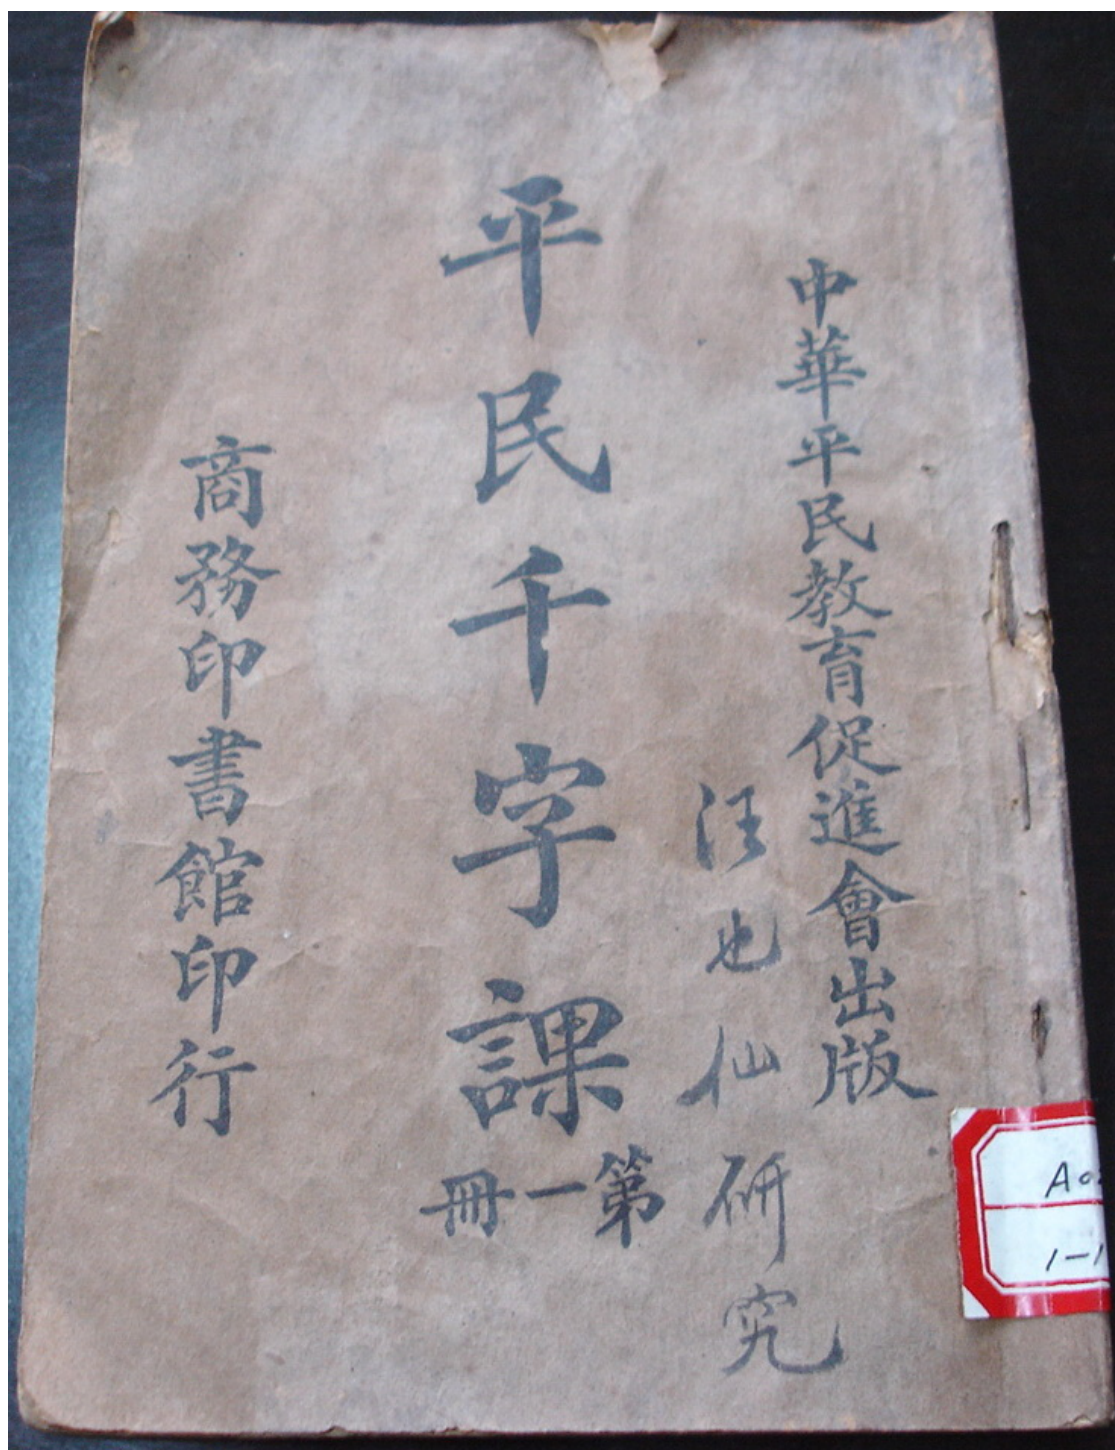 中華平民教育促進會出版
汪也仙研究
平民千字課
第一冊
商務印書館印行
1-1